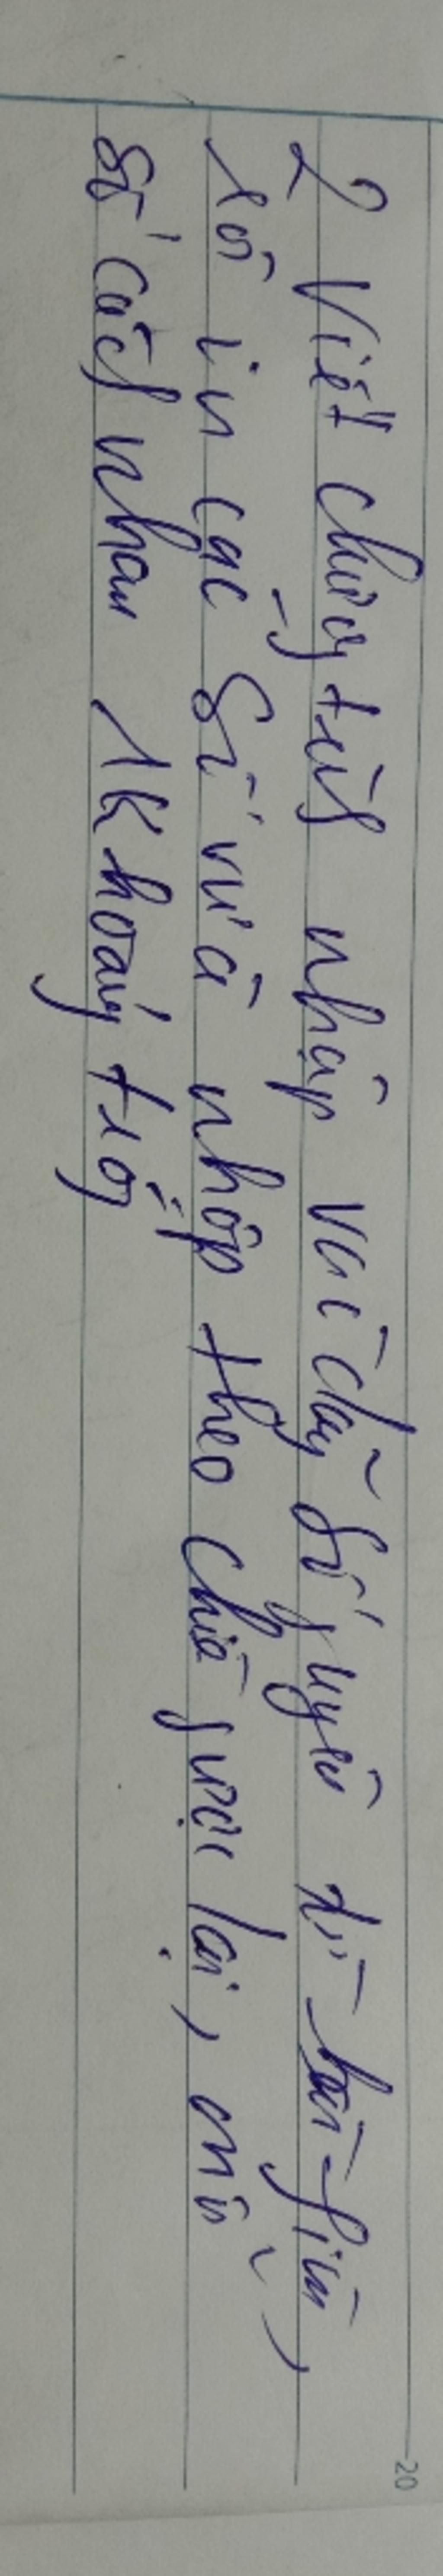 2 Viết chương trình nhập vào dãy số nguyên từ bàn phím,
rồi in các số vừa nhập theo chiều ngược lại, mỗi
số cách nhau 1 khoảng trống
20